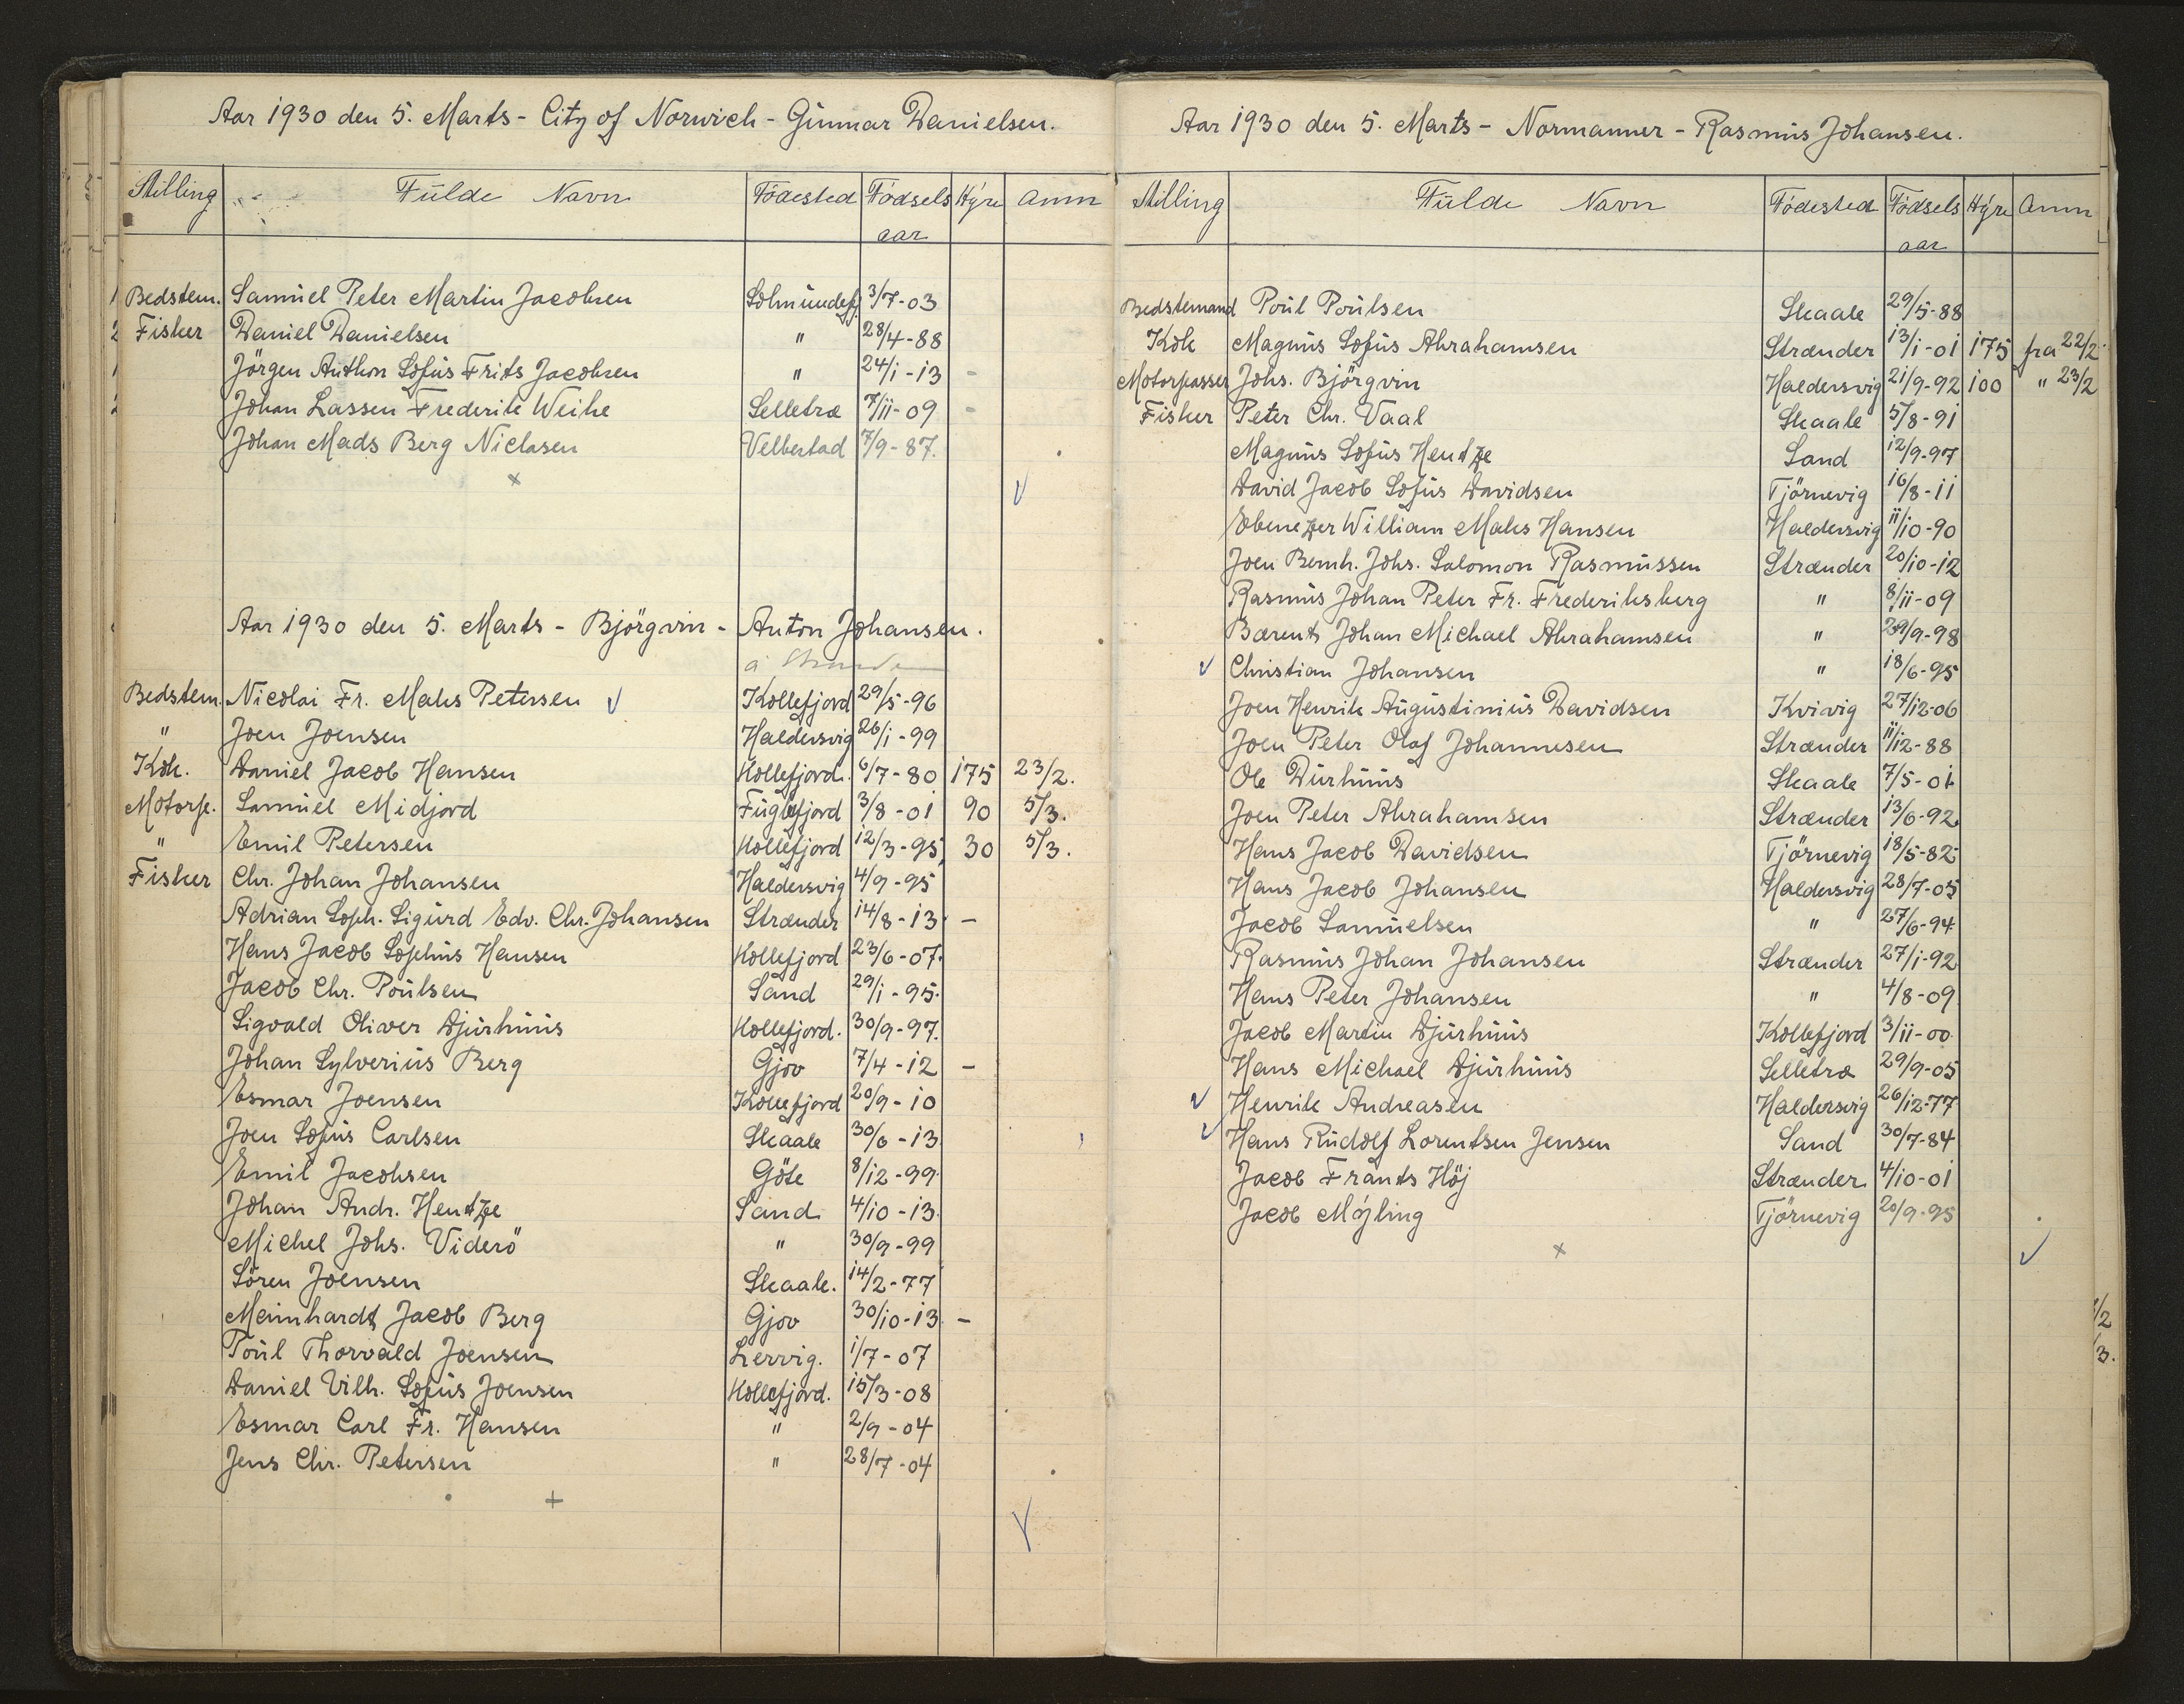 Aar 1930 den 5. Marts - City of Norwich - Gunnar Danielsen.
Stilling Fulde Navn Födested Födsels aar Hyre Anm
Bedstem. Samuel Peter Martin Jacobsen Solmundefj. 3/7-03
Fisker Daniel Danielsen " 28/4-88
Jörgen Anthon Sofus Frits Jacobsen " 24/1-13 -
Johan Lassen Frederik Weihe Selletræ 7/11-09 -
Johan Mads Berg Niclasen Velbestad 7/9-87.
x
Aar 1930 den 5. Marts - Björgvin - Anton Johansen.
Bedstem. Nicolai Fr. Mahs Petersen ✓ Kollefjord 29/5-96
" Joen Joensen Haldersvig 26/1-99
Kok. Daniel Jacob Hansen Kollefjord. 6/7-80 175 23/2.
Motorp. Samuel Midjord Fuglefjord 3/8-01 90 5/3.
" Emil Petersen Kollefjord 12/3-95 30 5/3.
Fisker Chr. Johan Johansen Haldersvig 4/9-95
Adrian Soph. Sigurd Edv. Chr. Johansen Strænder 14/8-13 -
Hans Jacob Sophus Hansen Kollefjord 23/6-07.
Jacob Chr. Poulsen Sand 29/1-95.
Sigvald Oliver Djurhuus Kollefjord. 30/9-97.
Johan Sylverius Berg Gjov 7/4-12 -
Esmar Joensen Kollefjord 20/9-10
Joen Sofus Carlsen Skaale 30/6-13
Emil Jacobsen Göte 8/12-99
Johan Andr. Hentze Sand 4/10-13
Michel Johs. Viderö " 30/9-99
Sören Joensen Skaale. 14/2-77
Meinhardt Jacob Berg Gjov 30/10-13 -
Poul Thorvald Joensen Lervig. 1/7-07
Daniel Vilh. Sofus Joensen Kollefjord. 15/3-08
Esmar Carl Fr. Hansen " 2/9-04
Jens Chr. Petersen " 28/7-04
+
Aar 1930 den 5. Marts - Normanner - Rasmus Johansen.
Stilling Fulde Navn Födested Födsels aar Hyre Anm
Bedstemand Poul Poulsen Skaale 29/5-88
Kok Magnus Sofus Abrahamsen Strænder 13/1-01 175 fra 22/2
Motorpasser Johs. Björgvin Haldersvig 21/9-92 100 " 23/2
Fisker Peter Chr. Vaal Skaale 5/8-91
Magnus Sofus Hentze Sand 12/9-97
David Jacob Sofus Davidsen Tjörnevig 16/8-11
Ebenezer William Mahs Hansen Haldersvig 11/10-90
Joen Bernh. Johs. Salomon Rasmussen Strænder 20/10-12
Rasmus Johan Peter Fr. Frederiksberg " 8/11-09
Bærent Johan Michael Abrahamsen " 29/9-98
✓ Christian Johansen " 18/6-95
Joen Henrik Augustinius Davidsen Kvivig 27/12-06
Joen Peter Olaf Johannesen Strænder 11/12-88
Ole Durhuus Skaale 7/5-01
Joen Peter Abrahamsen Strænder 13/6-92
Hans Jacob Davidsen Tjörnevig 18/5-82
Hans Jacob Johansen Haldersvig 28/7-05
Jacob Samuelsen " 27/6-94
Rasmus Johan Johansen Strænder 27/1-92
Hans Peter Johansen " 4/8-09
Jacob Martin Djurhuus Kollefjord 3/11-00
Hans Michael Djurhuus Selletræ 29/9-05
✓ Henrik Andreasen Haldersvig 26/12-77
✓ Hans Rudolf Lorentsen Jensen Sand 30/7-84
Jacob Frants Höj Strænder 4/10-01
Jacob Möjling Tjörnevig 20/9-95
x